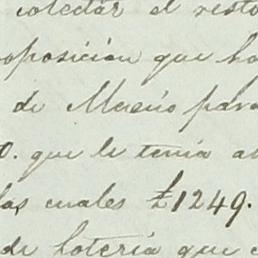 colectar el resto
oposición que ha
de Moreno para
o. que le tenia a
las cuales £1249.
de loteria que